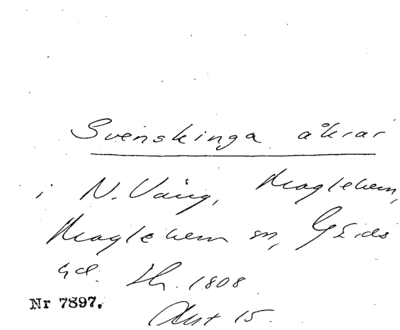 Svenskinga åkrar
i N. Vång, Maglehem,
Maglehem sn, Gärds
hd. Lh. 1808
Nr 7897.
Akt 15.